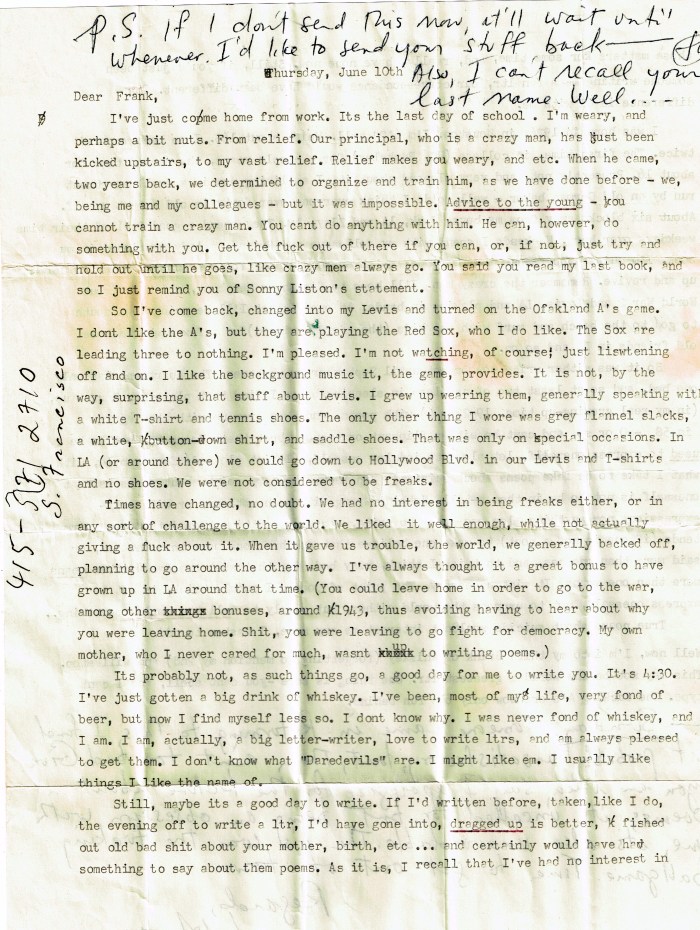 P.S. If I don't send this now, it'll wait until
whenever. I'd like to send your stuff back—
Thursday, June 10th Also, I can't recall your
Dear Frank, last name. Well....
I've just copme home from work. Its the last day of school . I'm weary, and
perhaps a bit nuts. From relief. Our principal, who is a crazy man, has just been
kicked upstairs, to my vast relief. Relief makes you weary, and etc. When he came,
two years back, we determined to organize and train him, as we have done before - we,
being me and my colleagues - but it was impossible. Advice to the young - you
cannot train a crazy man. You cant do anything with him. He can, however, do
something with you. Get the fuck out of there if you can, or, if not, just try and
hold out until he goes, like crazy men always go. You said you read my last book, and
so I just remind you of Sonny Liston's statement.
So I've come back, changed into my Levis and turned on the Ofakland A's game.
I dont like the A's, but they are playing the Red Sox, who I do like. The Sox are
leading three to nothing. I'm pleased. I'm not watching, of course; just liswtening
off and on. I like the background music it, the game, provides. It is not, by the
way, surprising, that stuff about Levis. I grew up wearing them, generally speaking with
a white T-shirt and tennis shoes. The only other thing I wore was grey flannel slacks,
a white, button-down shirt, and saddle shoes. That was only on special occasions. In
LA (or around there) we could go down to Hollywood Blvd. in our Levis and T-shirts
and no shoes. We were not considered to be freaks.
Times have changed, no doubt. We had no interest in being freaks either, or in
any sort of challenge to the world. We liked it well enough, while not actually
giving a fuck about it. When it gave us trouble, the world, we generally backed off,
planning to go around the other way. I've always thought it a great bonus to have
grown up in LA around that time. (You could leave home in order to go to the war,
among other bonuses, around 1943, thus avoiding having to hear about why
you were leaving home. Shit, you were leaving to go fight for democracy. My own
mother, who I never cared for much, wasnt up to writing poems.)
Its probably not, as such things go, a good day for me to write you. It's 4:30.
I've just gotten a big drink of whiskey. I've been, most of my life, very fond of
beer, but now I find myself less so. I dont know why. I was never fond of whiskey, and
I am. I am, actually, a big letter-writer, love to write ltrs, and am always pleased
to get them. I don't know what "Daredevils" are. I might like em. I usually like
things I like the name of.
Still, maybe its a good day to write. If I'd written before, taken, like I do,
the evening off to write a ltr, I'd have gone into, dragged up is better, fished
out old bad shit about your mother, birth, etc ... and certainly would have had
something to say about them poems. As it is, I recall that I've had no interest in
415- 2710
S. Francisco